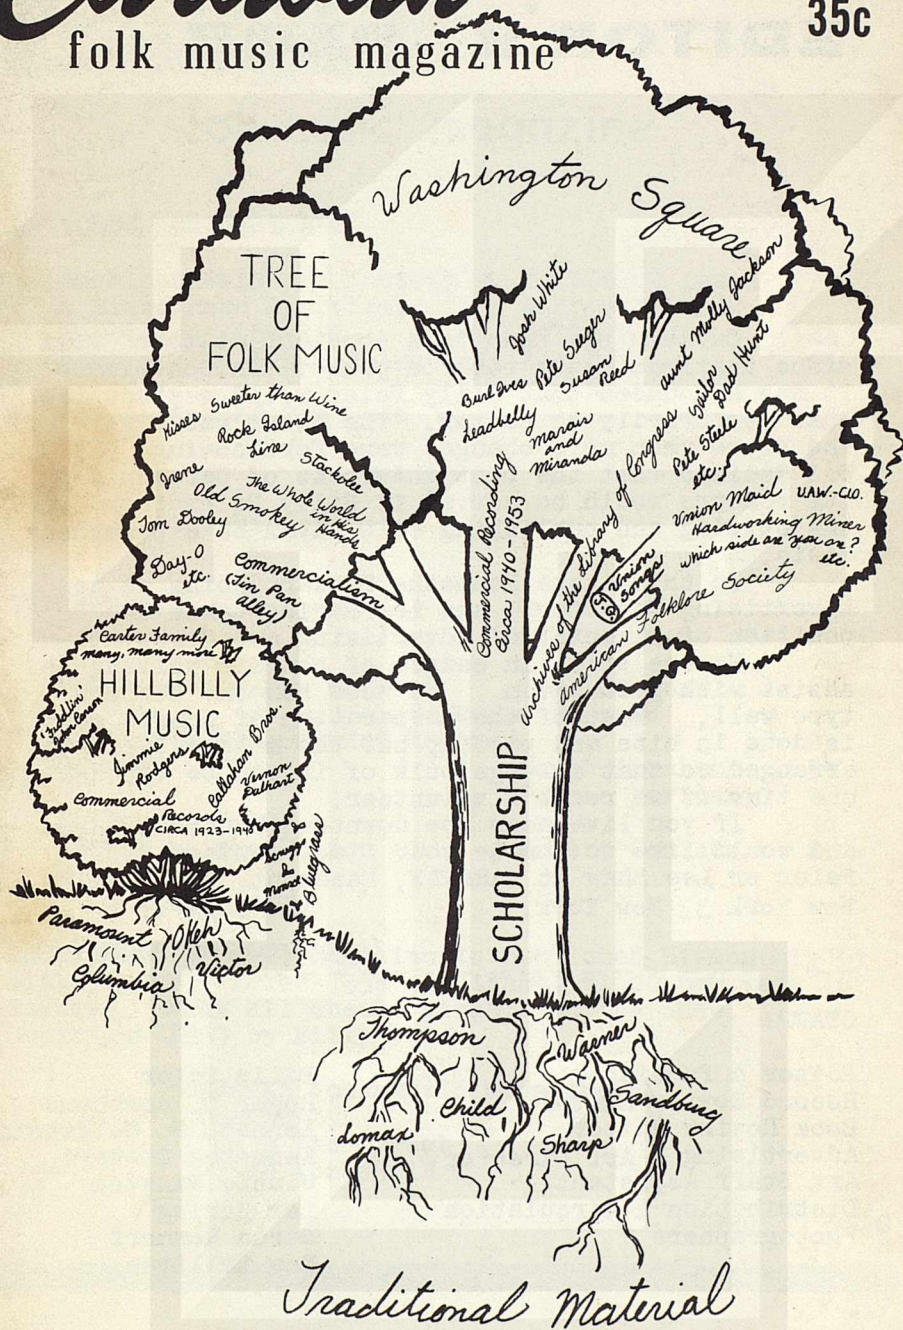 folk music magazine
35c
Washington Square
TREE
OF
FOLK MUSIC
Kisses Sweeter than Wine
Rock Island
Line
Irene
Stackolee
Old Smokey
The Whole World
in His
Hands
Tom Dooley
Day-O
etc.
Commercialism
(Tin Pan
Alley)
Josh White
Burl Ives
Pete Seeger
Leadbelly
Susan
Reed
Marais
and
Miranda
Commercial Recording
Circa 1940-1953
Aunt Molly Jackson
Sailor
Dad Hunt
Pete Steele
etc.
Archives of the Library of Congress
Union
Songs
Union Maid
UAW.-CIO.
Hardworking Miner
Which side are you on?
etc.
American Folklore Society
Carter Family
many, many more
HILLBILLY
MUSIC
Fiddlin'
John Carson
Jimmie
Rodgers
Callahan Bros.
Vernon
Dalhart
Commercial
Records
CIRCA 1923-1940
Scruggs
&
Monroe
Bluegrass
Paramount
Okeh
Columbia
Victor
SCHOLARSHIP
Thompson
Warner
Lomax
Child
Sharp
Sandburg
Traditional Material